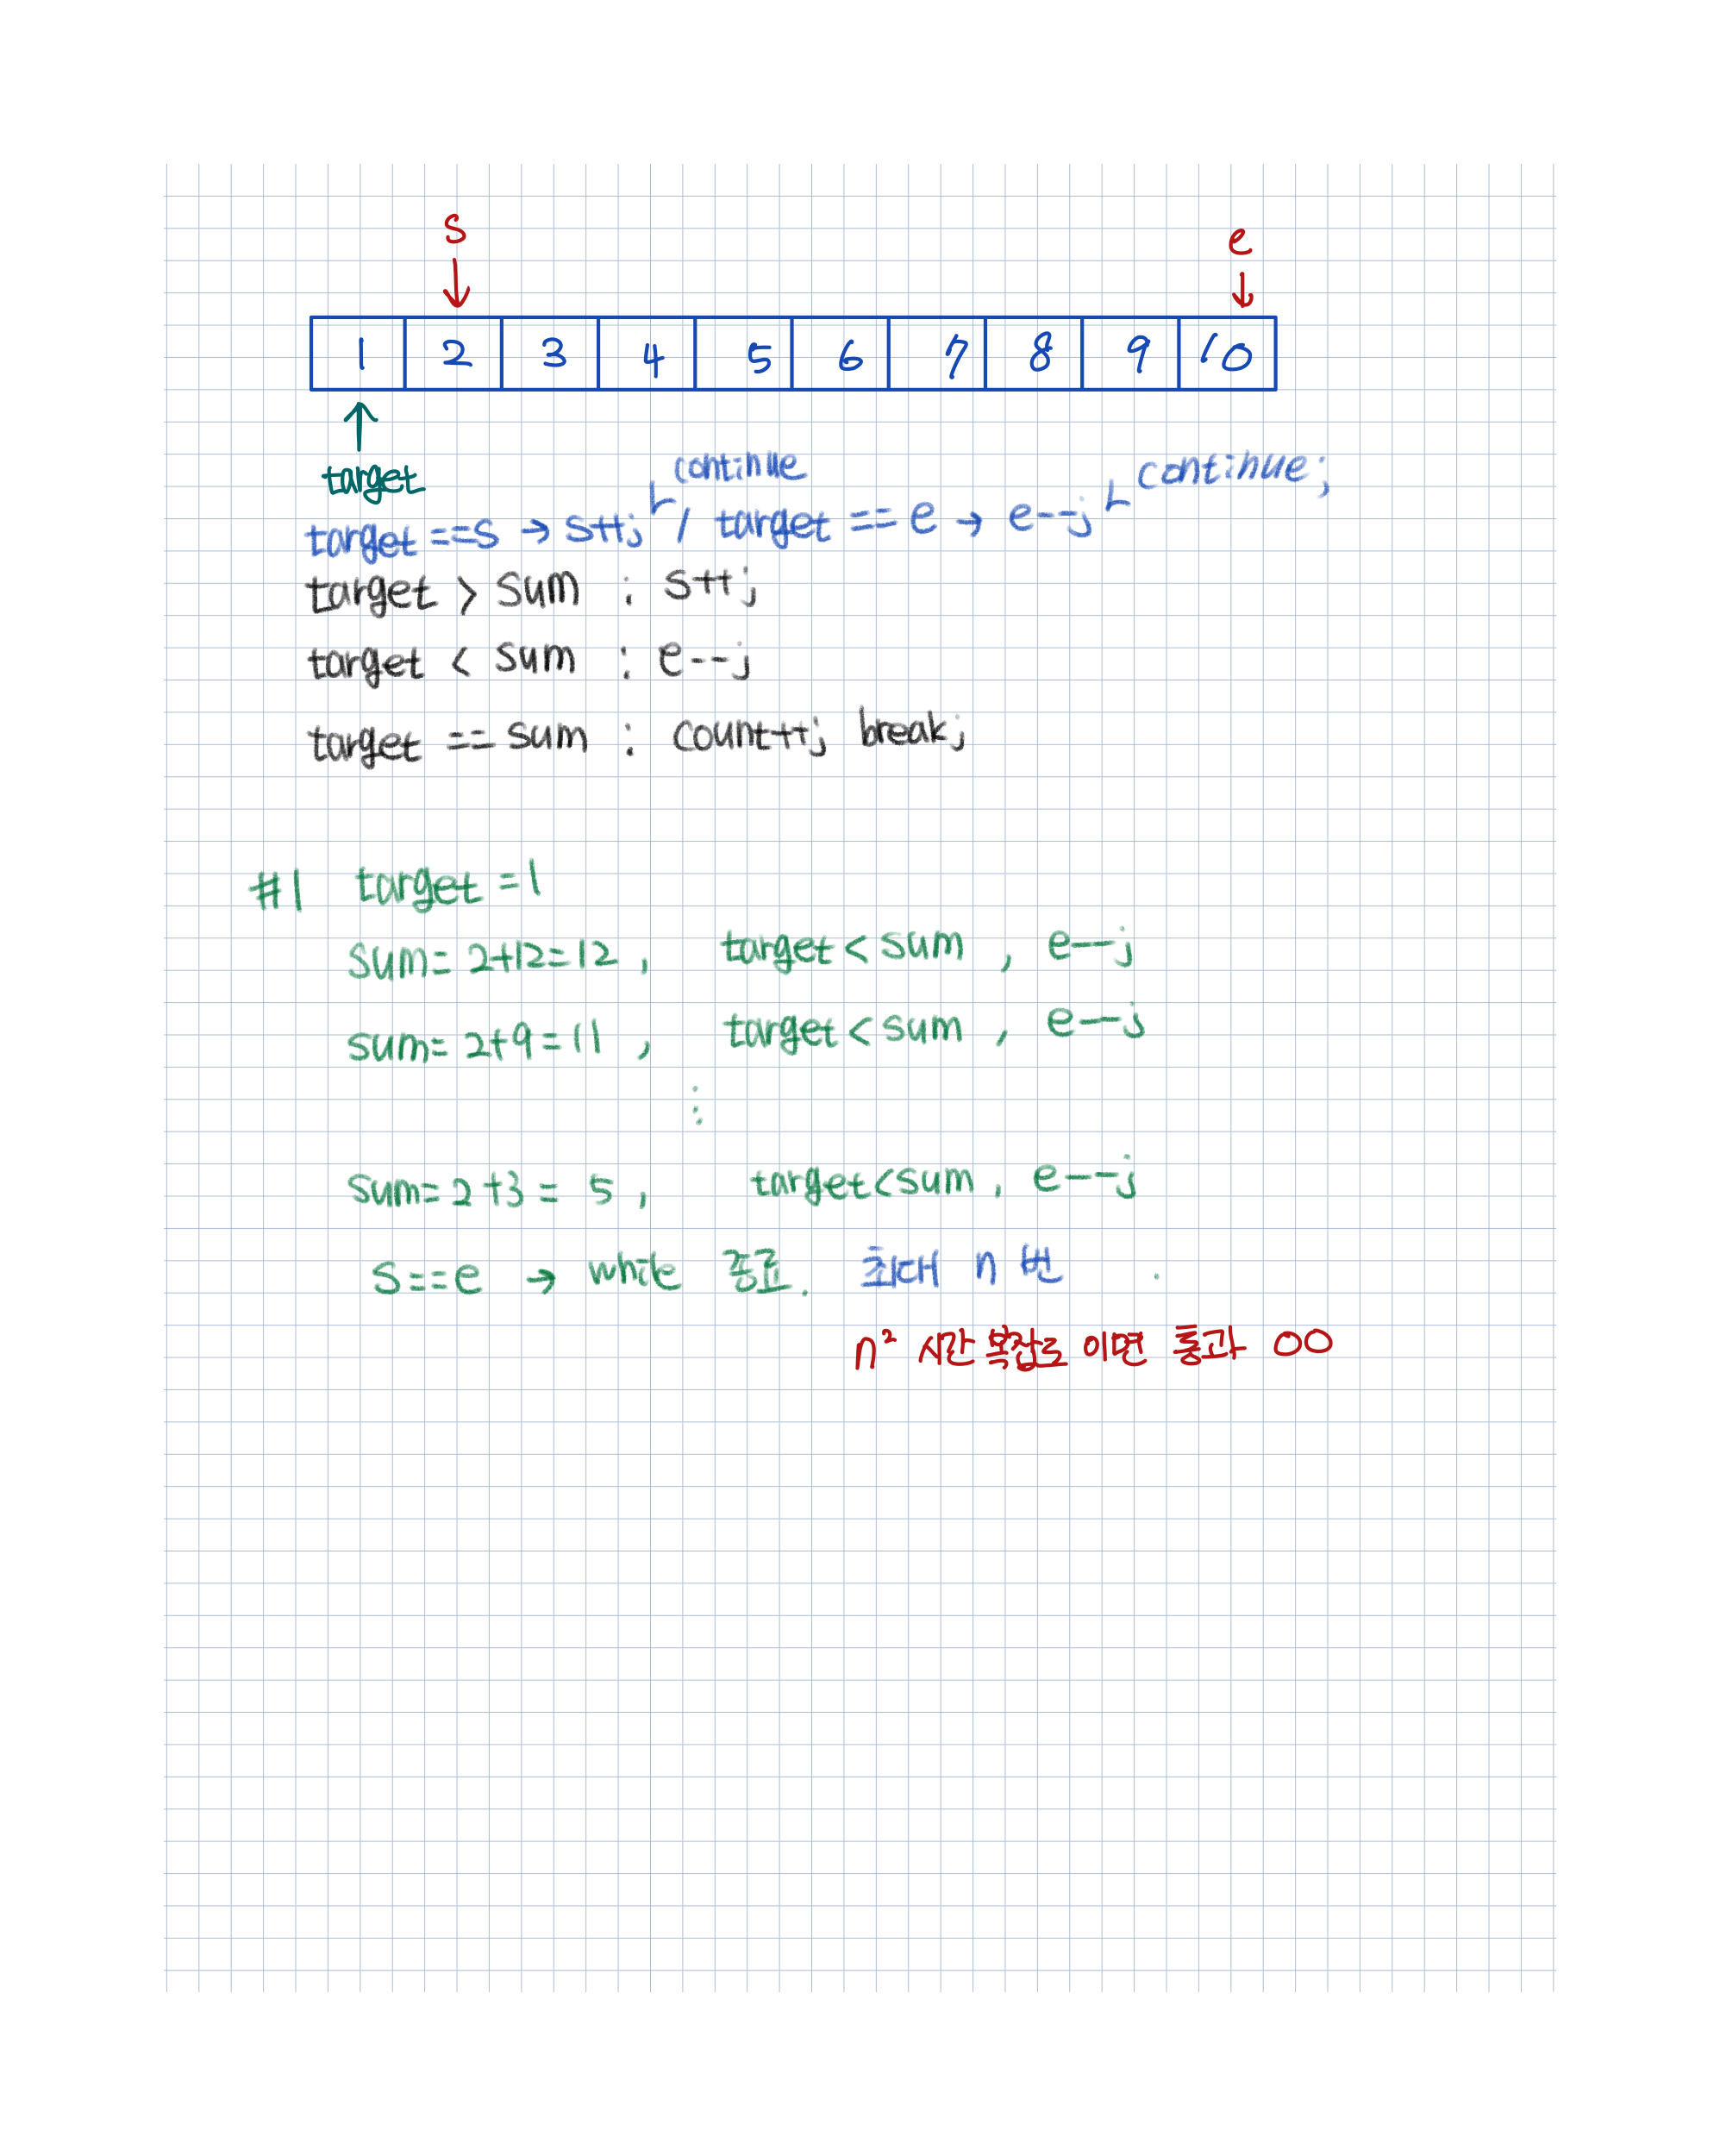 s e
1 2 3 4 5 6 7 8 9 10
target
continue continue;
target ==s → s++; / target == e → e--;
target > sum : s++;
target < sum : e--;
target == sum : count++; break;
#1 target =1
sum= 2+12=12 , target < sum , e--;
sum= 2+9=11 , target < sum , e--;
⋮
sum=2+3= 5 , target<sum , e--;
s==e → while 종료. 최대 n 번
n² 시간 복잡도 이면 통과 OO